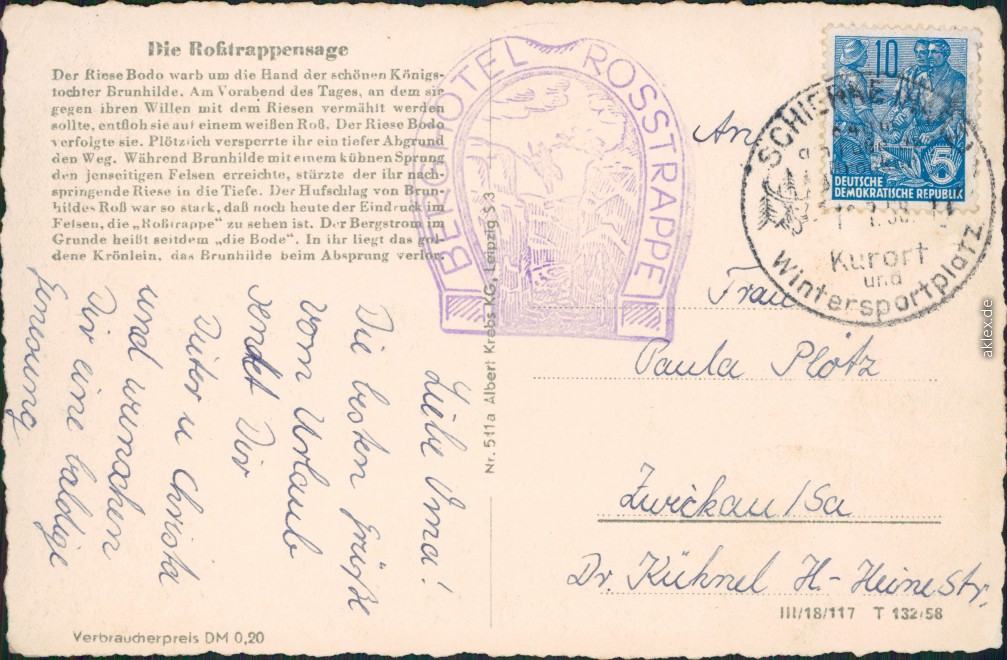 Die Roßtrappensage
Der Riese Bodo warb um die Hand der schönen Königs-
tochter Brunhilde. Am Vorabend des Tages, an dem sie
gegen ihren Willen mit dem Riesen vermählt werden
sollte, entfloh sie auf einem weißen Roß. Der Riese Bodo
verfolgte sie. Plötzlich versperrte ihr ein tiefer Abgrund
den Weg. Während Brunhilde mit einem kühnen Sprung
den jenseitigen Felsen erreichte, stürzte der ihr nach-
springende Riese in die Tiefe. Der Hufschlag von Brun-
hildes Roß war so stark, daß noch heute der Eindruck im
Felsen, die „Roßtrappe" zu sehen ist. Der Bergstrom im
Grunde heißt seitdem „die Bode". In ihr liegt das gol-
dene Krönlein, das Brunhilde beim Absprung verlor.
Liebe Oma!
Die besten Grüße
vom Urlaub
sendet Dir
Dieter u Christa
und wünschen
Dir eine baldige
Genesung
Verbraucherpreis DM 0,20
BERGHOTEL ROSSTRAPPE
Nr. 511a Albert Krebs KG, Leipzig S 3
10
5
DEUTSCHE
DEMOKRATISCHE REPUBLIK
SCHIERKE
Kurort
und
Wintersportplatz
An
Frau
Paula Plötz
Zwickau/Sa
Dr. Kühnel H-Heine Str.
III/18/117 T 132/58
aklex.de